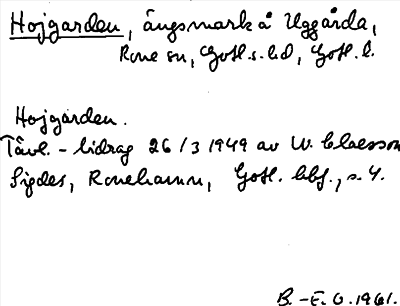 Hojgarden, ängsmark å Uggårda,
Rone sn, Gotl. s. hd, Gotl. l.
Hojgarden.
Tävl.-bidrag 26/3 1949 av W. Claesson
Sigdes, Ronehamn, Gotl. hbf., s. 4.
B.-E. O. 1961.